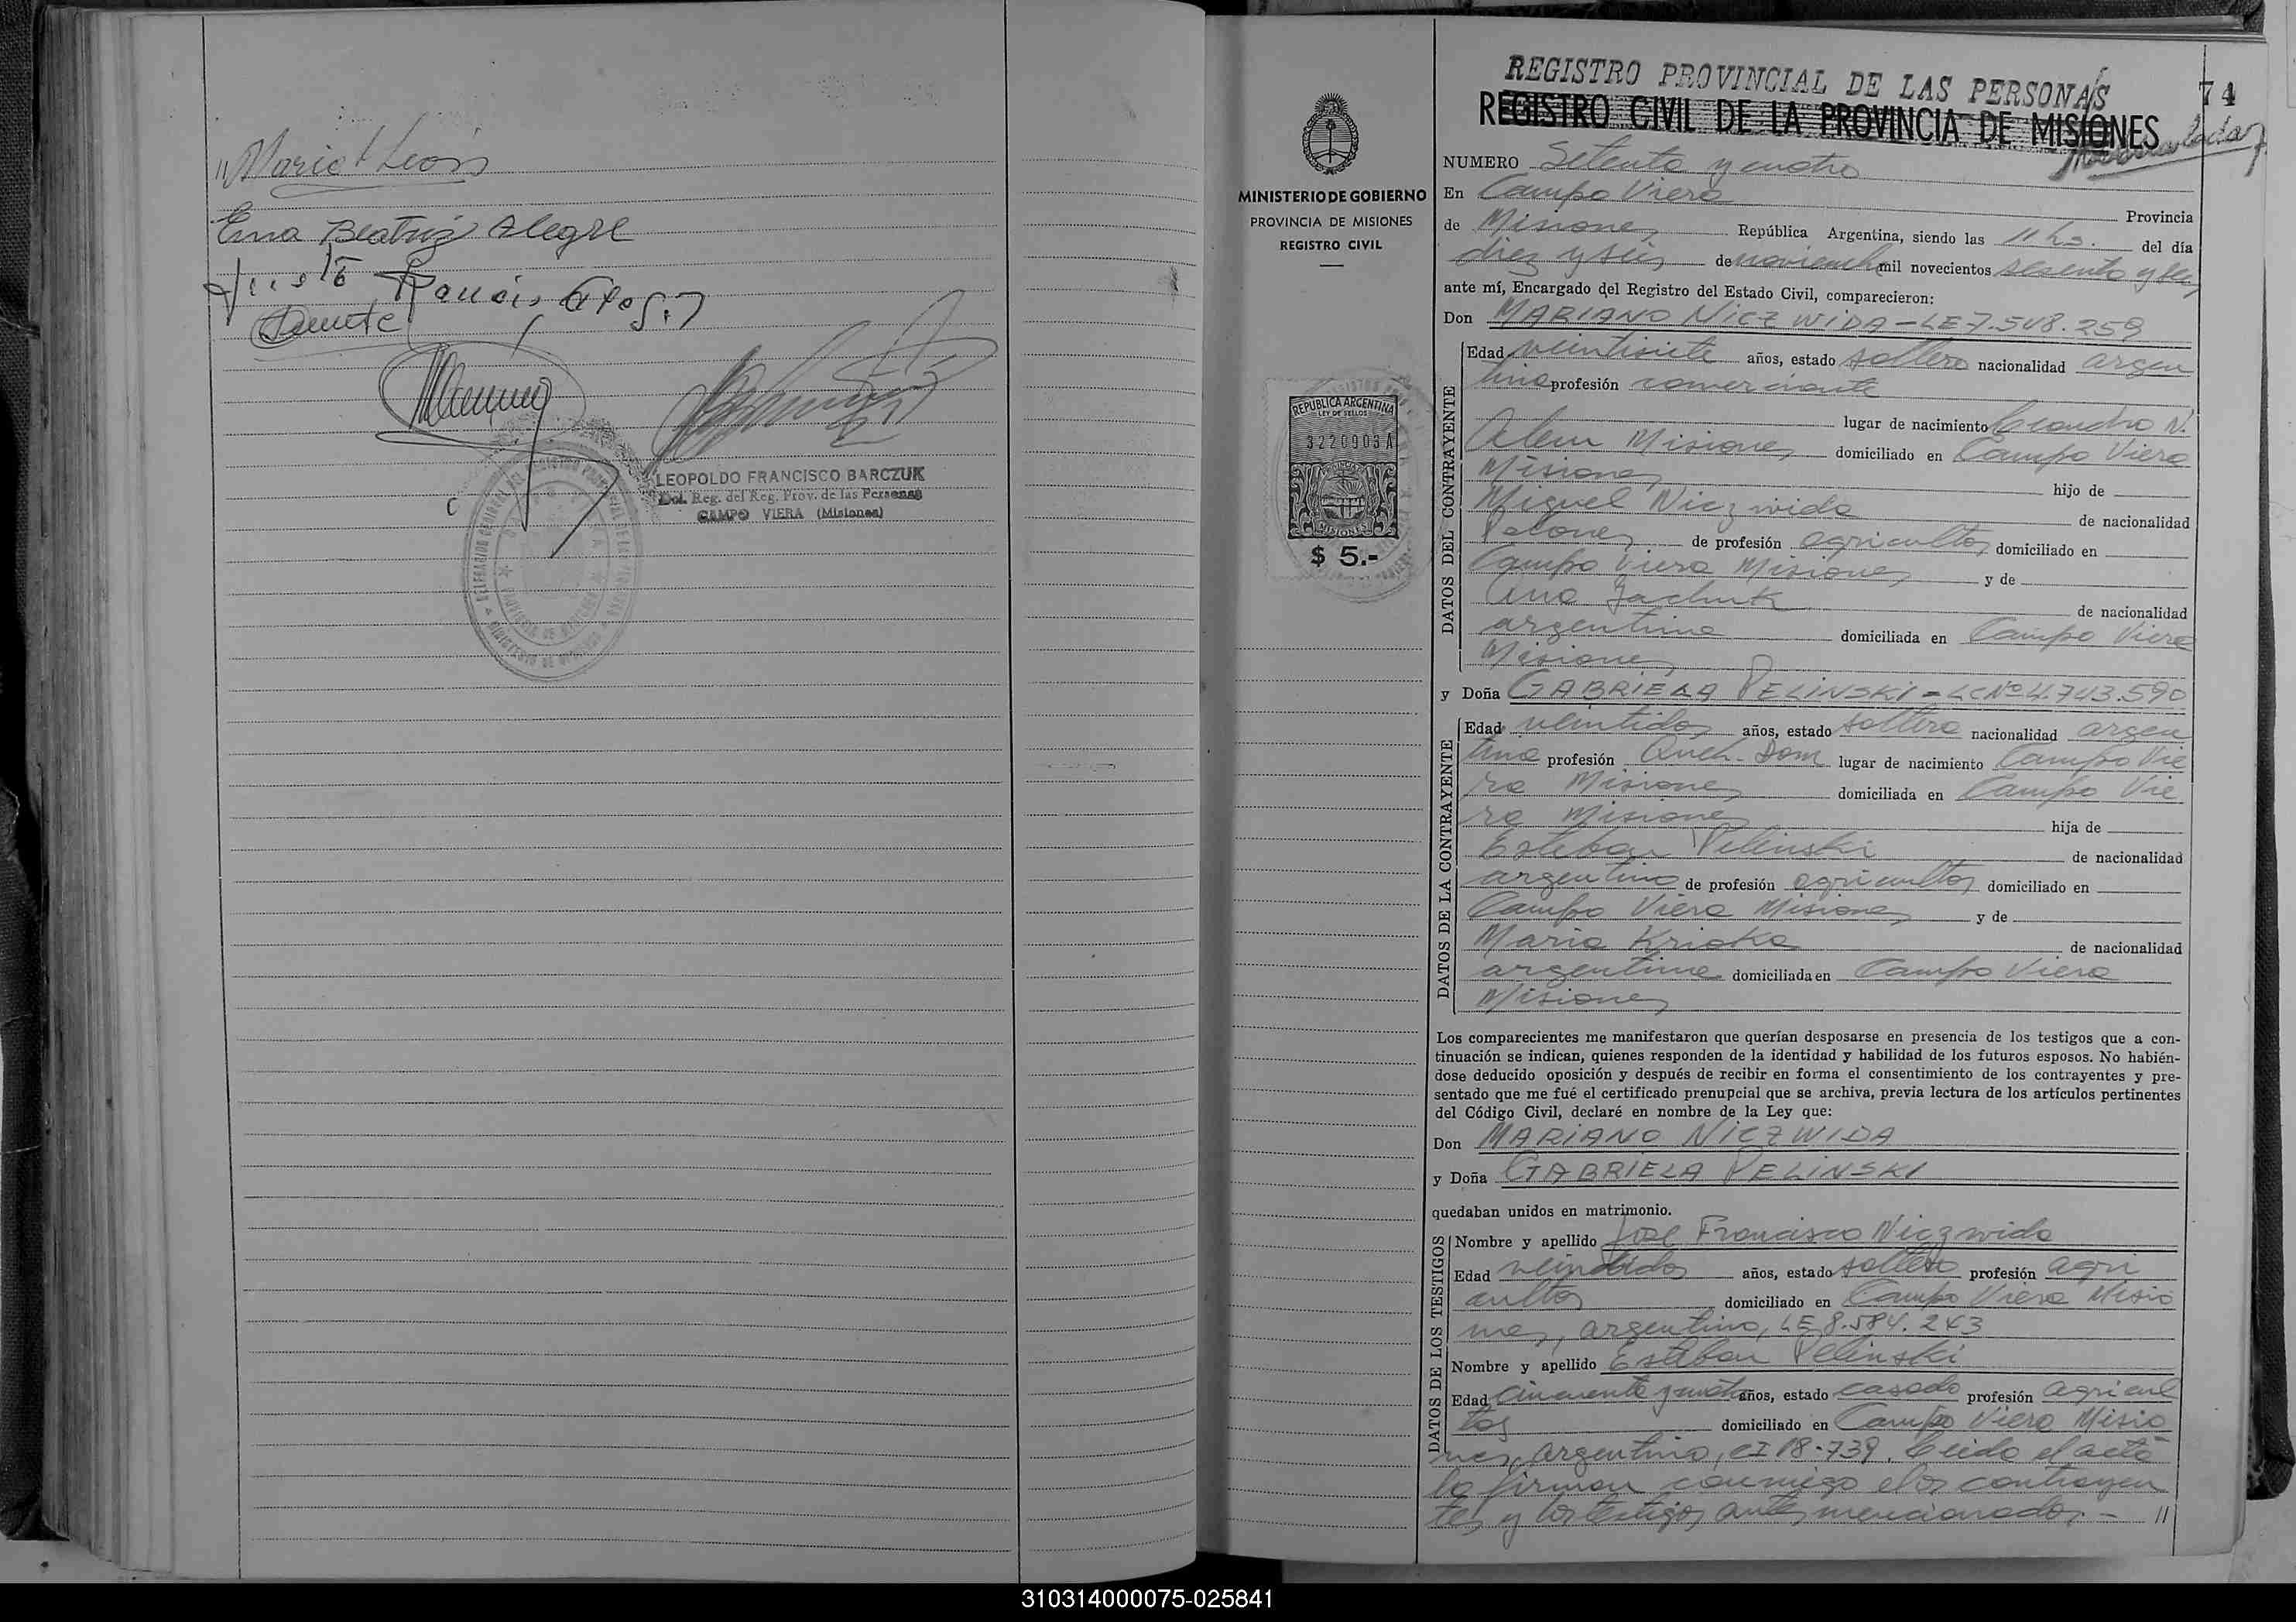 "Maria L León
Ema Beatriz Alegre
Justo Ramón
LEOPOLDO FRANCISCO BARCZUK
Del. Reg. del Reg. Prov. de las Personas
CAMPO VIERA (Misiones)
MINISTERIO DE GOBIERNO
PROVINCIA DE MISIONES
REGISTRO CIVIL
REPUBLICA ARGENTINA
LEY DE SELLOS
3220903 A
MISIONES
$ 5.-
REGISTRO PROVINCIAL DE LAS PERSONAS
74
REGISTRO CIVIL DE LA PROVINCIA DE MISIONES
NUMERO Setenta y cuatro
En Campo Viera Provincia
de Misiones República Argentina, siendo las 11 hs. del día
diez y seis de noviembre mil novecientos sesenta y seis
ante mí, Encargado del Registro del Estado Civil, comparecieron:
Don MARIANO NICZWIDA - LE 7.548.259
DATOS DEL CONTRAYENTE
Edad veintisiete años, estado soltero nacionalidad argen
tina profesión comerciante
lugar de nacimiento Leandro N.
Alem Misiones domiciliado en Campo Viera
Misiones hijo de
Miguel Niczwida de nacionalidad
Polones de profesión agricultor domiciliado en
Campo Viera Misiones y de
Ana Jachuk de nacionalidad
argentina domiciliada en Campo Viera
Misiones
y Doña GABRIELA PELINSKI - LC Nº 4.743.590
DATOS DE LA CONTRAYENTE
Edad veintidos años, estado soltera nacionalidad argen
tina profesión Queh. Dom lugar de nacimiento Campo Vie
ra Misiones domiciliada en Campo Vie
ra Misiones hija de
Esteban Pelinski de nacionalidad
argentino de profesión agricultor domiciliado en
Campo Viera Misiones y de
Maria Krioka de nacionalidad
argentina domiciliada en Campo Viera
Misiones
Los comparecientes me manifestaron que querían desposarse en presencia de los testigos que a con-
tinuación se indican, quienes responden de la identidad y habilidad de los futuros esposos. No habién-
dose deducido oposición y después de recibir en forma el consentimiento de los contrayentes y pre-
sentado que me fué el certificado prenupcial que se archiva, previa lectura de los artículos pertinentes
del Código Civil, declaré en nombre de la Ley que:
Don MARIANO NICZWIDA
y Doña GABRIELA PELINSKI
quedaban unidos en matrimonio.
DATOS DE LOS TESTIGOS
Nombre y apellido José Francisco Niczwida
Edad veintidos años, estado soltero profesión agri
cultor domiciliado en Campo Viera Misio
nes, argentino, LE 8.584.243
Nombre y apellido Esteban Pelinski
Edad cincuenta y cuatro años, estado casado profesión agricul
tor domiciliado en Campo Viera Misio
nes, argentino, CI 18.739. Leido el acta
la firman conmigo los contrayen
tes y los testigos antes mencionados.- //
310314000075-025841